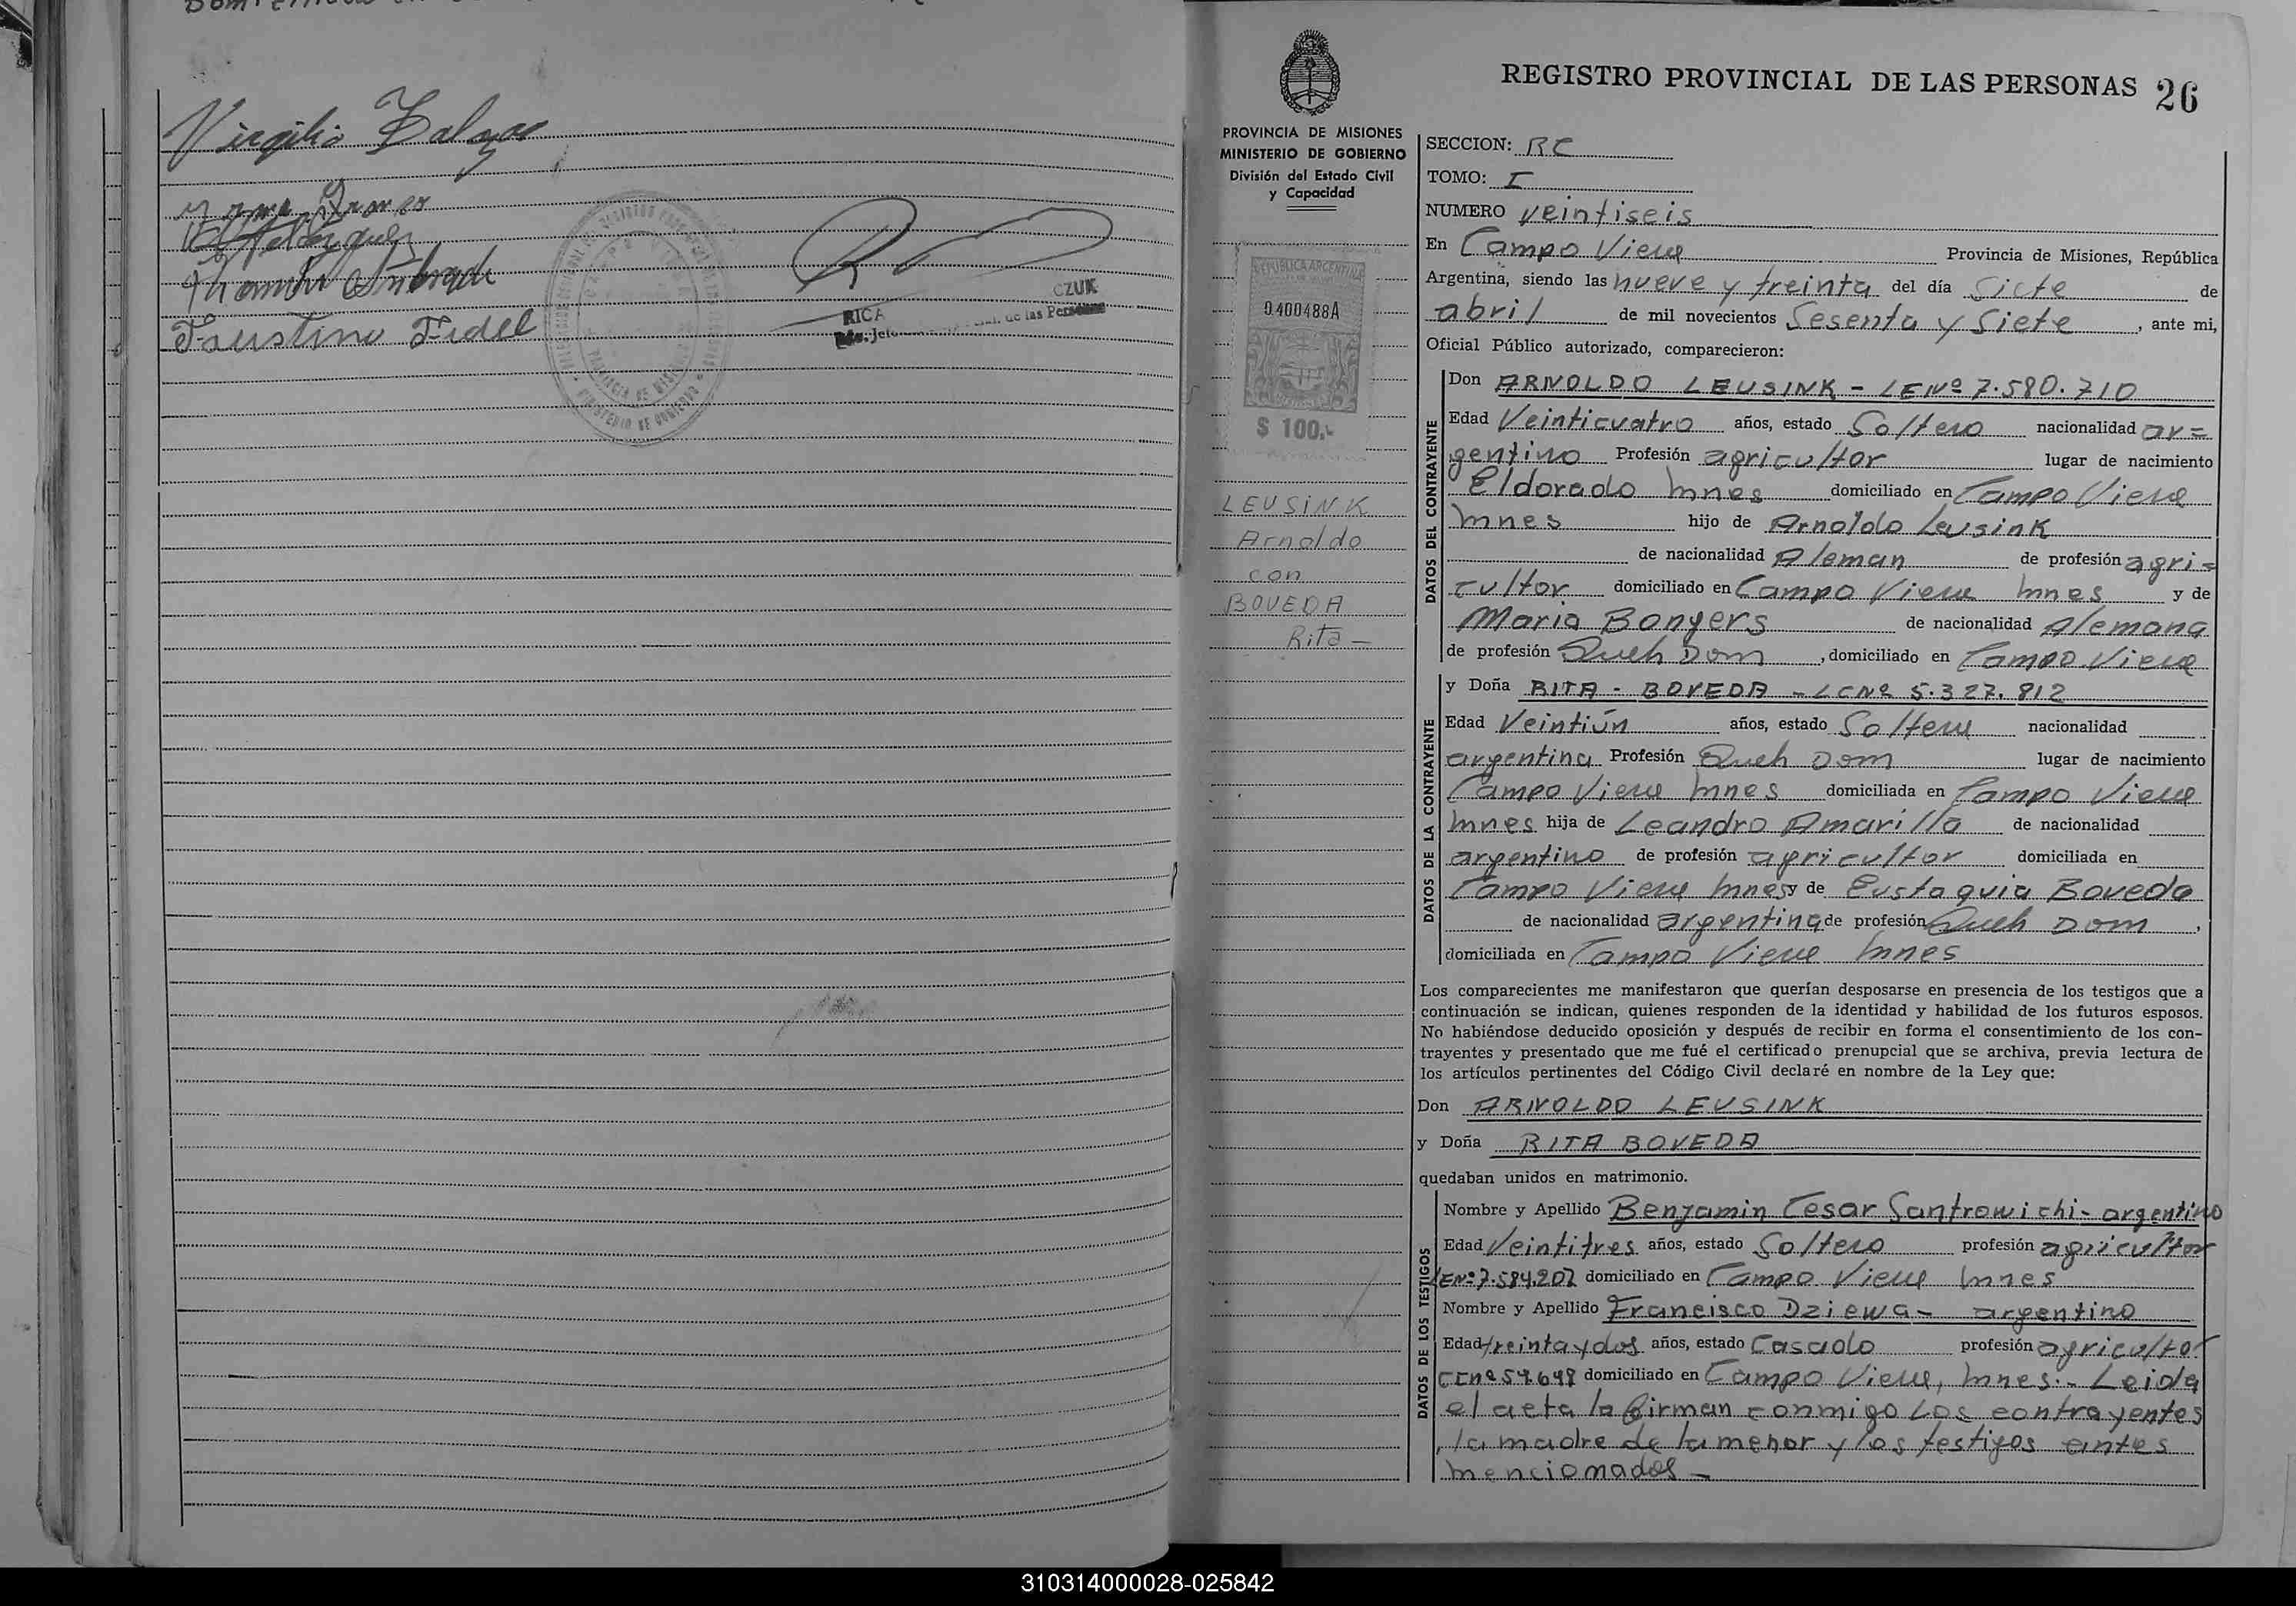 Virgilio
Faustino Fidel
RICA
CZUK
de las Personas
MINISTERIO DE GOBIERNO
PROVINCIA DE MISIONES
REGISTRO PROVINCIAL DE LAS PERSONAS 26
PROVINCIA DE MISIONES
MINISTERIO DE GOBIERNO
División del Estado Civil
y Capacidad
REPUBLICA ARGENTINA
0400488A
$ 100.-
LEUSINK
Arnoldo
con
BOVEDA
Rita -
SECCION: RC
TOMO: I
NUMERO veintiseis
En Campo Viera Provincia de Misiones, República
Argentina, siendo las nueve y treinta del día siete de
abril de mil novecientos Sesenta y Siete, ante mi,
Oficial Público autorizado, comparecieron:
DATOS DEL CONTRAYENTE
Don ARNOLDO LEUSINK - LENº 7.580.710
Edad Veinticuatro años, estado Soltero nacionalidad ar=
gentino Profesión agricultor lugar de nacimiento
Eldorado Mnes domiciliado en Campo Viera
Mnes hijo de Arnoldo Leusink
de nacionalidad Aleman de profesión agri=
cultor domiciliado en Campo Viera Mnes y de
Maria Bongers de nacionalidad Alemana
de profesión Queh Dom, domiciliado en Campo Viera
DATOS DE LA CONTRAYENTE
y Doña RITA - BOVEDA - LCNº 5.327.812
Edad Veintiún años, estado Soltera nacionalidad
argentina Profesión Queh Dom lugar de nacimiento
Campo Viera Mnes domiciliada en Campo Viera
Mnes hija de Leandro Amarilla de nacionalidad
argentino de profesión agricultor domiciliada en
Campo Viera Mnes y de Eustaquia Boveda
de nacionalidad argentina de profesión Queh Dom,
domiciliada en Campo Viera Mnes
Los comparecientes me manifestaron que querían desposarse en presencia de los testigos que a
continuación se indican, quienes responden de la identidad y habilidad de los futuros esposos.
No habiéndose deducido oposición y después de recibir en forma el consentimiento de los con-
trayentes y presentado que me fué el certificado prenupcial que se archiva, previa lectura de
los artículos pertinentes del Código Civil declaré en nombre de la Ley que:
Don ARNOLDO LEUSINK
y Doña RITA BOVEDA
quedaban unidos en matrimonio.
DATOS DE LOS TESTIGOS
Nombre y Apellido Benjamin Cesar Santrowichi - argentino
Edad Veintitres años, estado Soltero profesión agricultor
LENº 7.584.207 domiciliado en Campo Viera Mnes
Nombre y Apellido Francisco Dziewa - argentino
Edad treinta y dos años, estado Casado profesión agricultor
CCNº 57.648 domiciliado en Campo Viera, Mnes.- Leida
el acta la firman conmigo los contrayentes
, la madre de la menor y los testigos antes
mencionados -
310314000028-025842